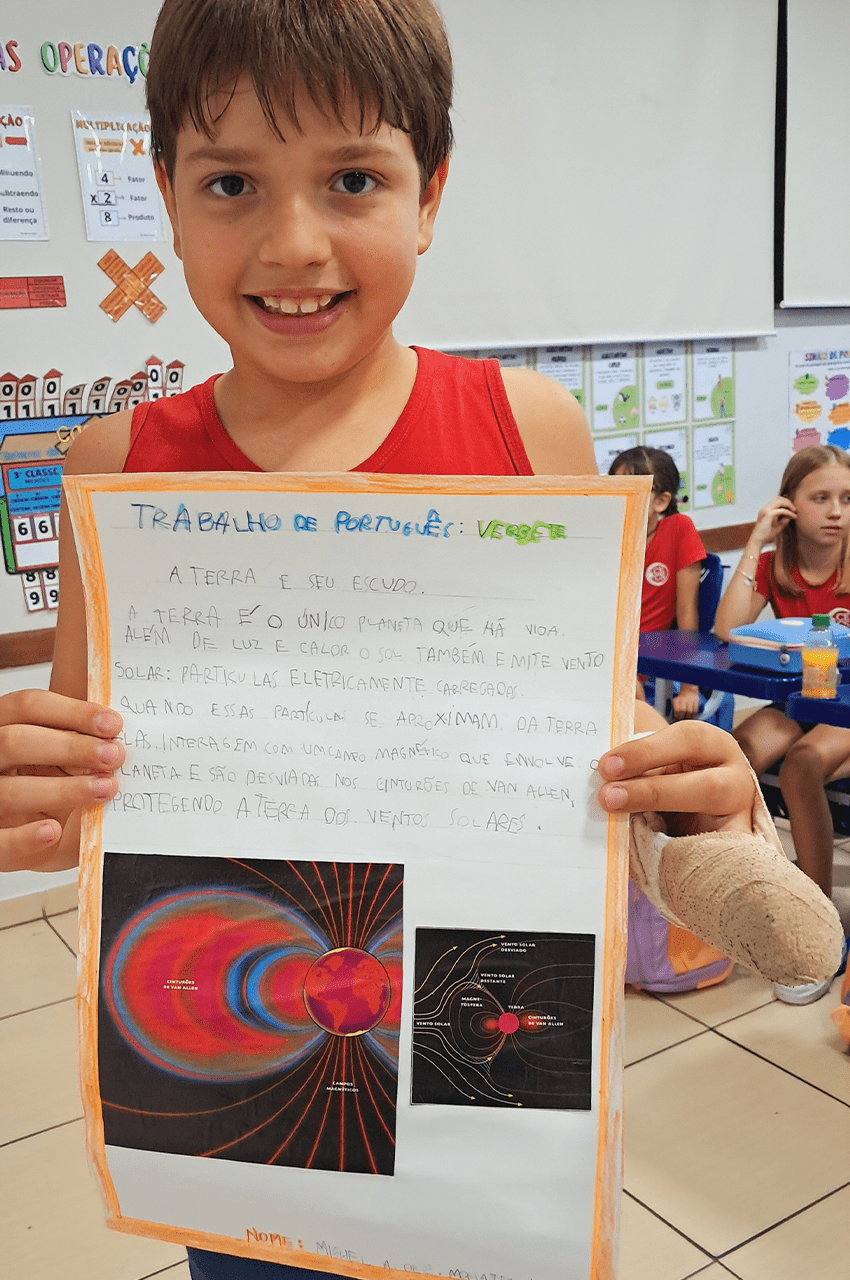 AS OPERAÇÕ
ÇÃO
Minuendo
Subtraendo
Resto ou
diferença
MULTIPLICAÇÃO
4 Fator
x 2 Fator
8 Produto
3ª CLASSE
MILHÕES
6 6
8 8
9 9
SINAIS DE PO
TRABALHO DE PORTUGUÊS: VERBETE
A TERRA E SEU ESCUDO.
A TERRA É O ÚNICO PLANETA QUE HÁ VIDA.
ALÉM DE LUZ E CALOR O SOL TAMBÉM EMITE VENTO
SOLAR: PARTICULAS ELETRICAMENTE CARREGADAS.
QUANDO ESSAS PARTÍCULAS SE APROXIMAM DA TERRA
ELAS INTERAGEM COM UM CAMPO MAGNÉTICO QUE ENVOLVE O
PLANETA E SÃO DESVIADAS NOS CINTURÕES DE VAN ALLEN,
PROTEGENDO A TERRA DOS VENTOS SOLARES.
CINTURÕES
DE VAN ALLEN
CAMPOS
MAGNÉTICOS
VENTO SOLAR
DESVIADO
VENTO SOLAR
RESTANTE
MAGNE-
TÓSFERA
TERRA
CINTURÕES
DE VAN ALLEN
VENTO SOLAR
NOME: MIGUEL A